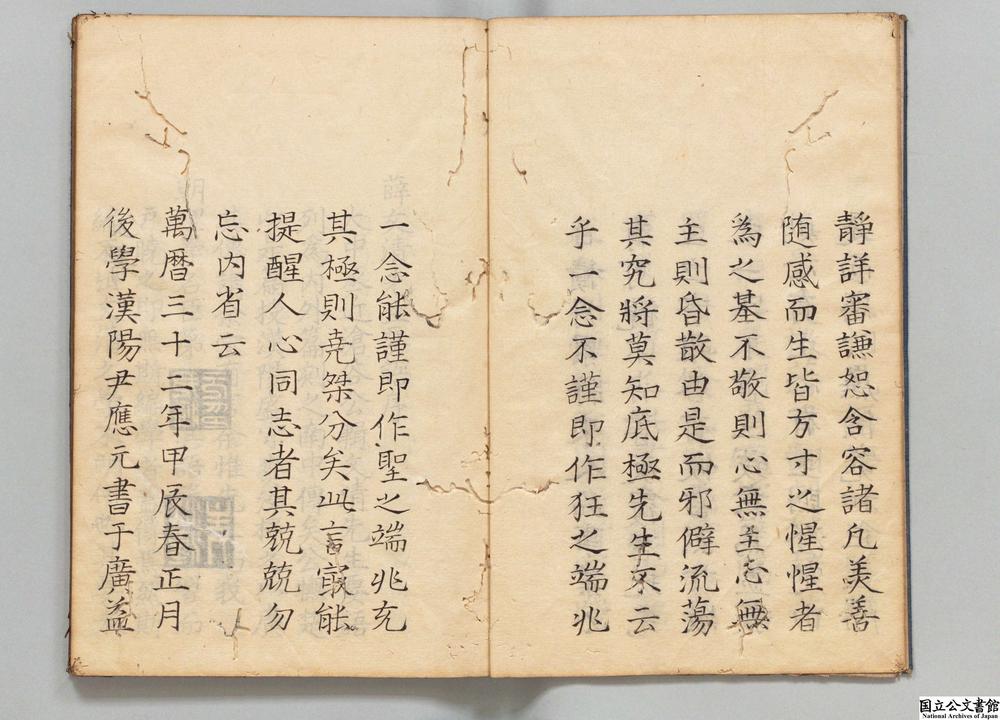 靜詳審謙恕含容諸凡美善
随感而生皆方寸之惺惺者
為之基不敬則心無主志無
主則昏散由是而邪僻流蕩
其究將莫知底極先生不云
乎一念不謹即作狂之端兆
一念能謹即作聖之端兆充
其極則尭桀分矣此言㝡能
提醒人心同志者其兢兢勿
忘内省云
萬暦三十二年甲辰春正月
後學漢陽尹應元書于廣益
国立公文書館
National Archives of Japan